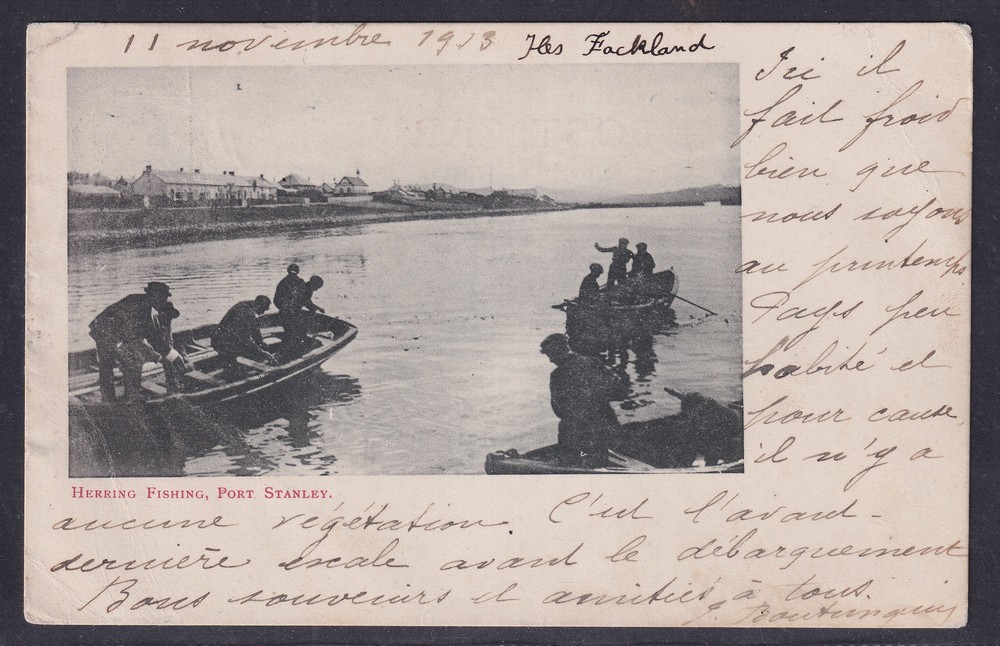 11 novembre 1913 Iles Fackland
Ici il
fait froid
bien que
nous soyons
au printemps.
Pays peu
habité et
pour cause,
il n'y a
HERRING FISHING, PORT STANLEY.
aucune végétation. C'est l'avant-
dernière escale avant le débarquement
Bons souvenirs et amitiés à tous.